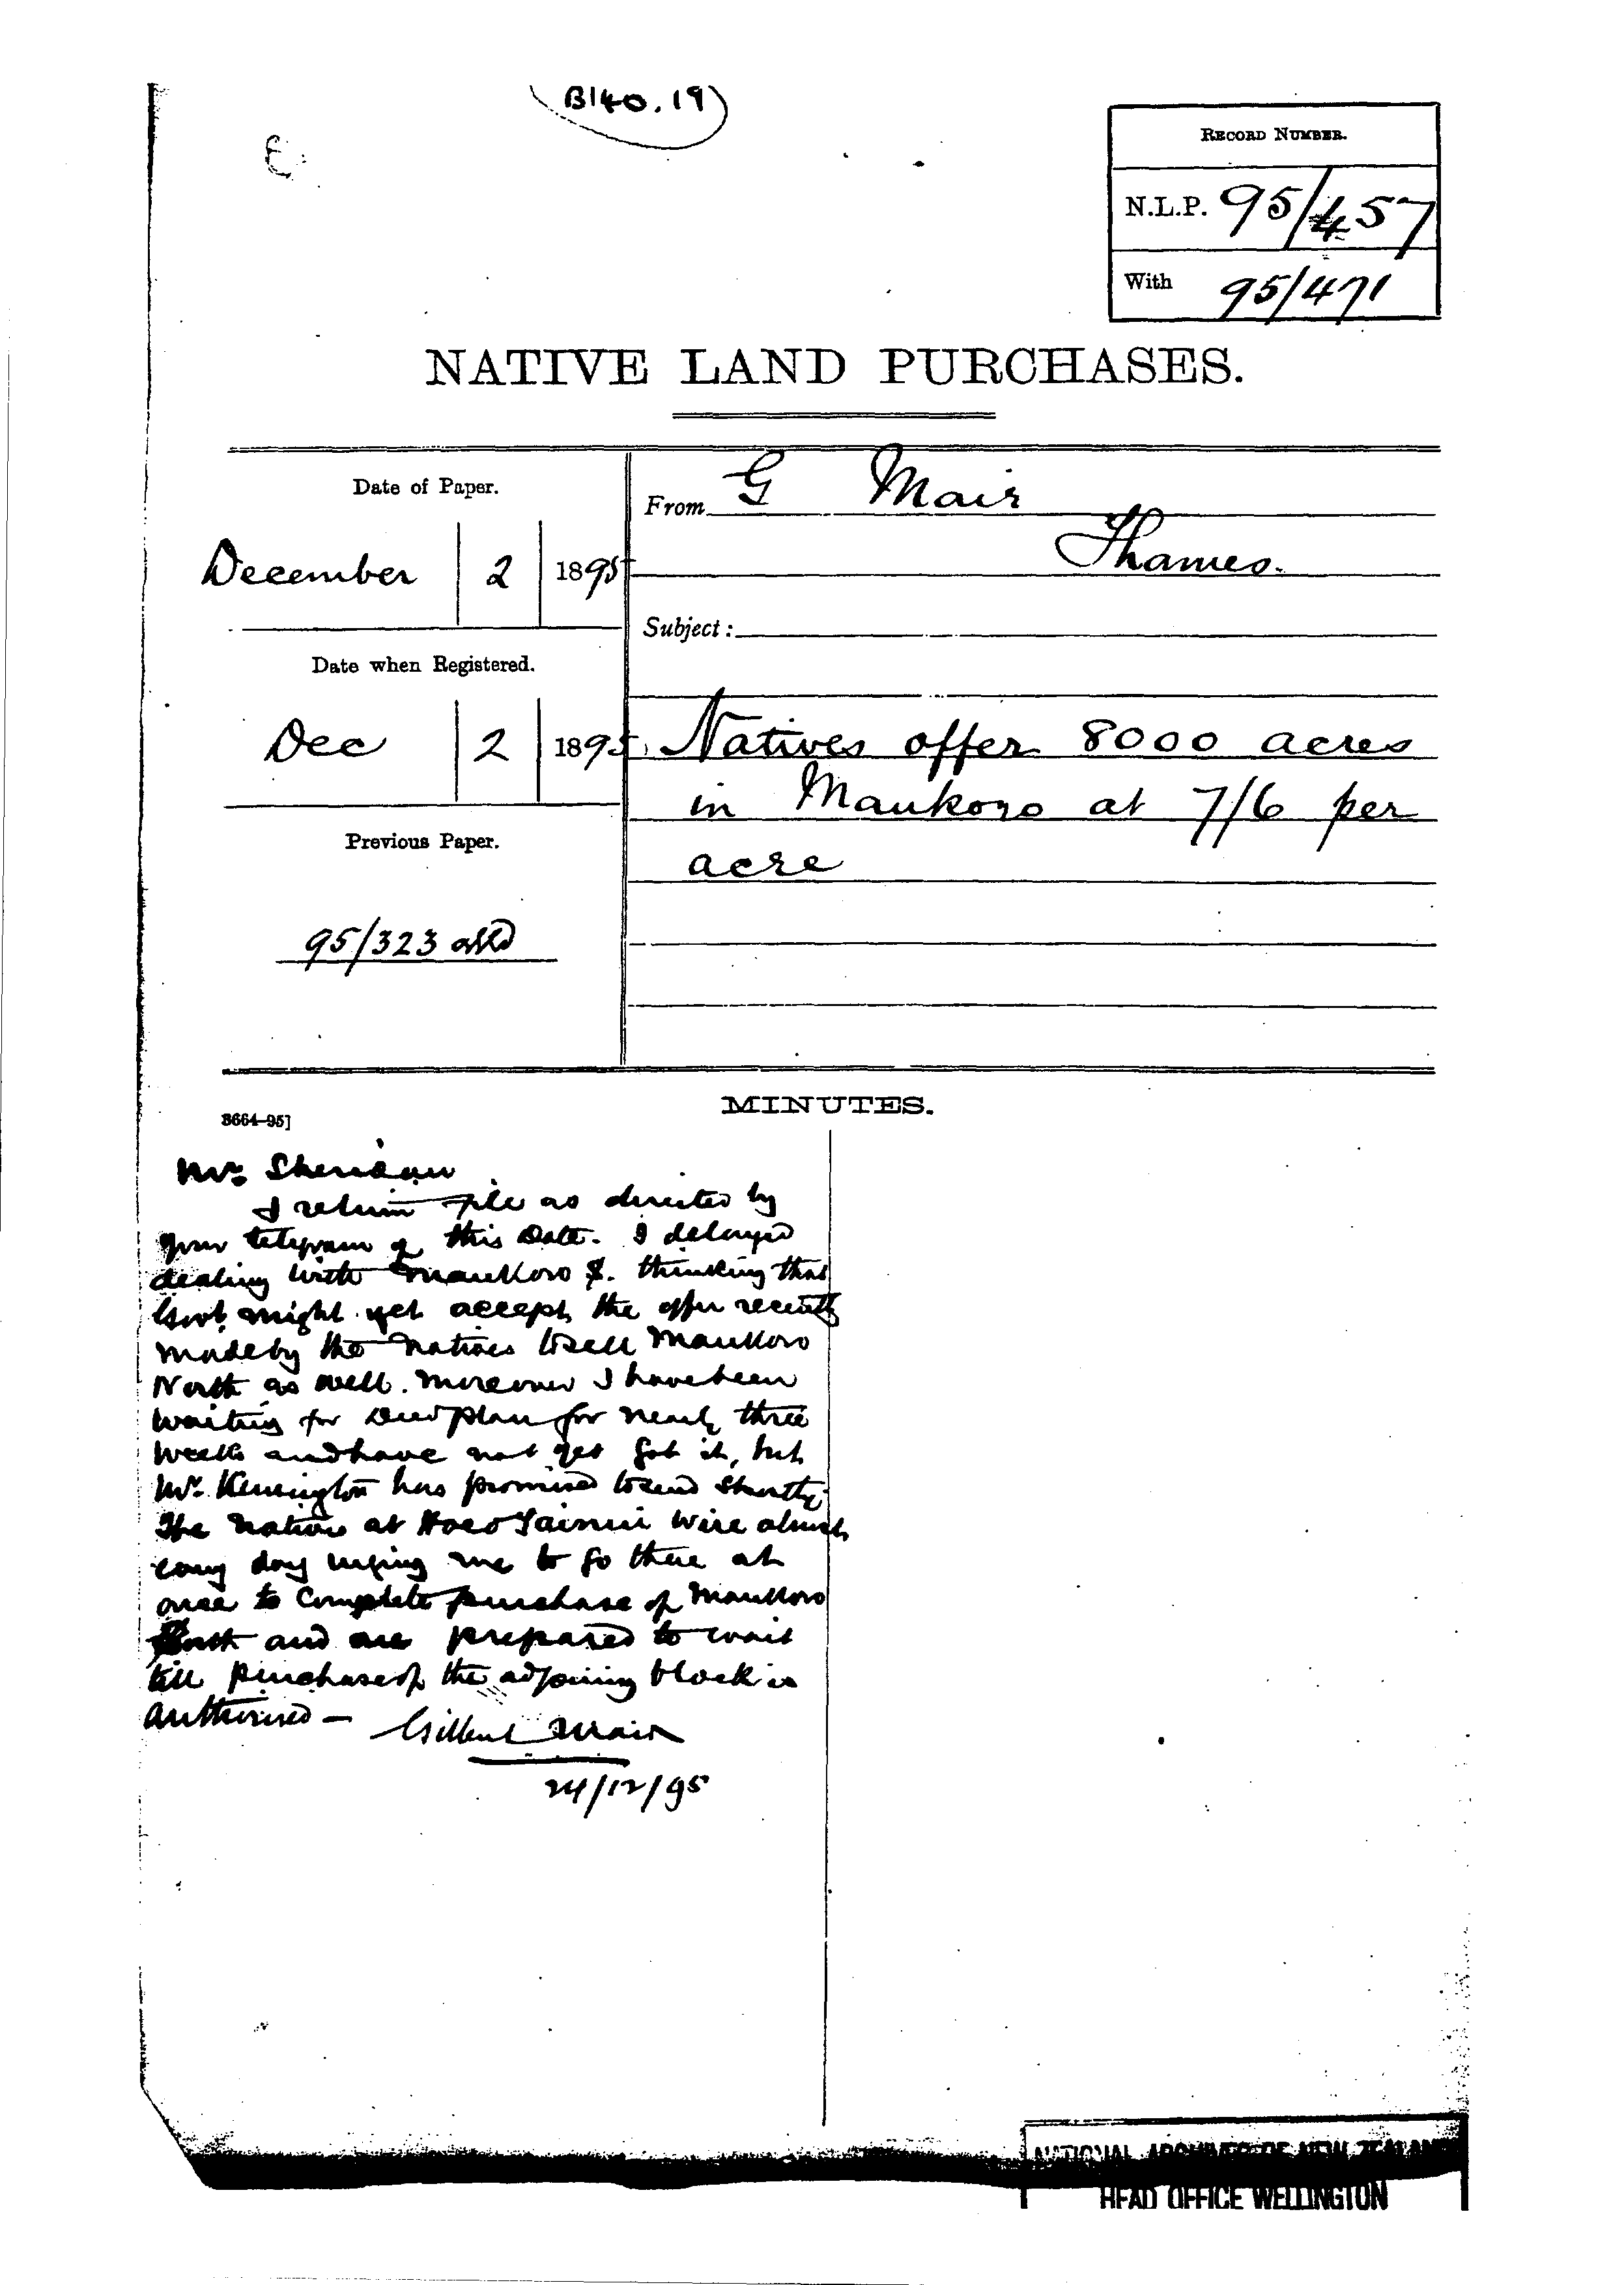 B140.19
RECORD NUMBER.
N.L.P. 95/457
With 95/471
NATIVE LAND PURCHASES.
Date of Paper.
December 2 1895
Date when Registered.
Dec 2 1895
Previous Paper.
95/323
From G Mair
Thames.
Subject:
Natives offer 8000 acres
in Maukoro at 7/6 per
acre
MINUTES.
3664–95]
Mr. Sheridan
I return file as directed by
your telegram of this date. I delayed
dealing with Maukoro S. thinking that
Govt. might yet accept the offer recently
made by the natives to sell Maukoro
North as well. Moreover I have been
waiting for Deed plan for nearly three
weeks and have not yet got it, but
Mr. Kensington has promised to send shortly.
The natives at Hoeotainui wire almost
every day urging me to go there at
once to complete purchase of Maukoro
and are prepared to wait
till purchase of the adjoining block is
authorised —
Gilbert Mair
24/12/95
NATIONAL ARCHIVES OF NEW ZEALAND
HEAD OFFICE WELLINGTON